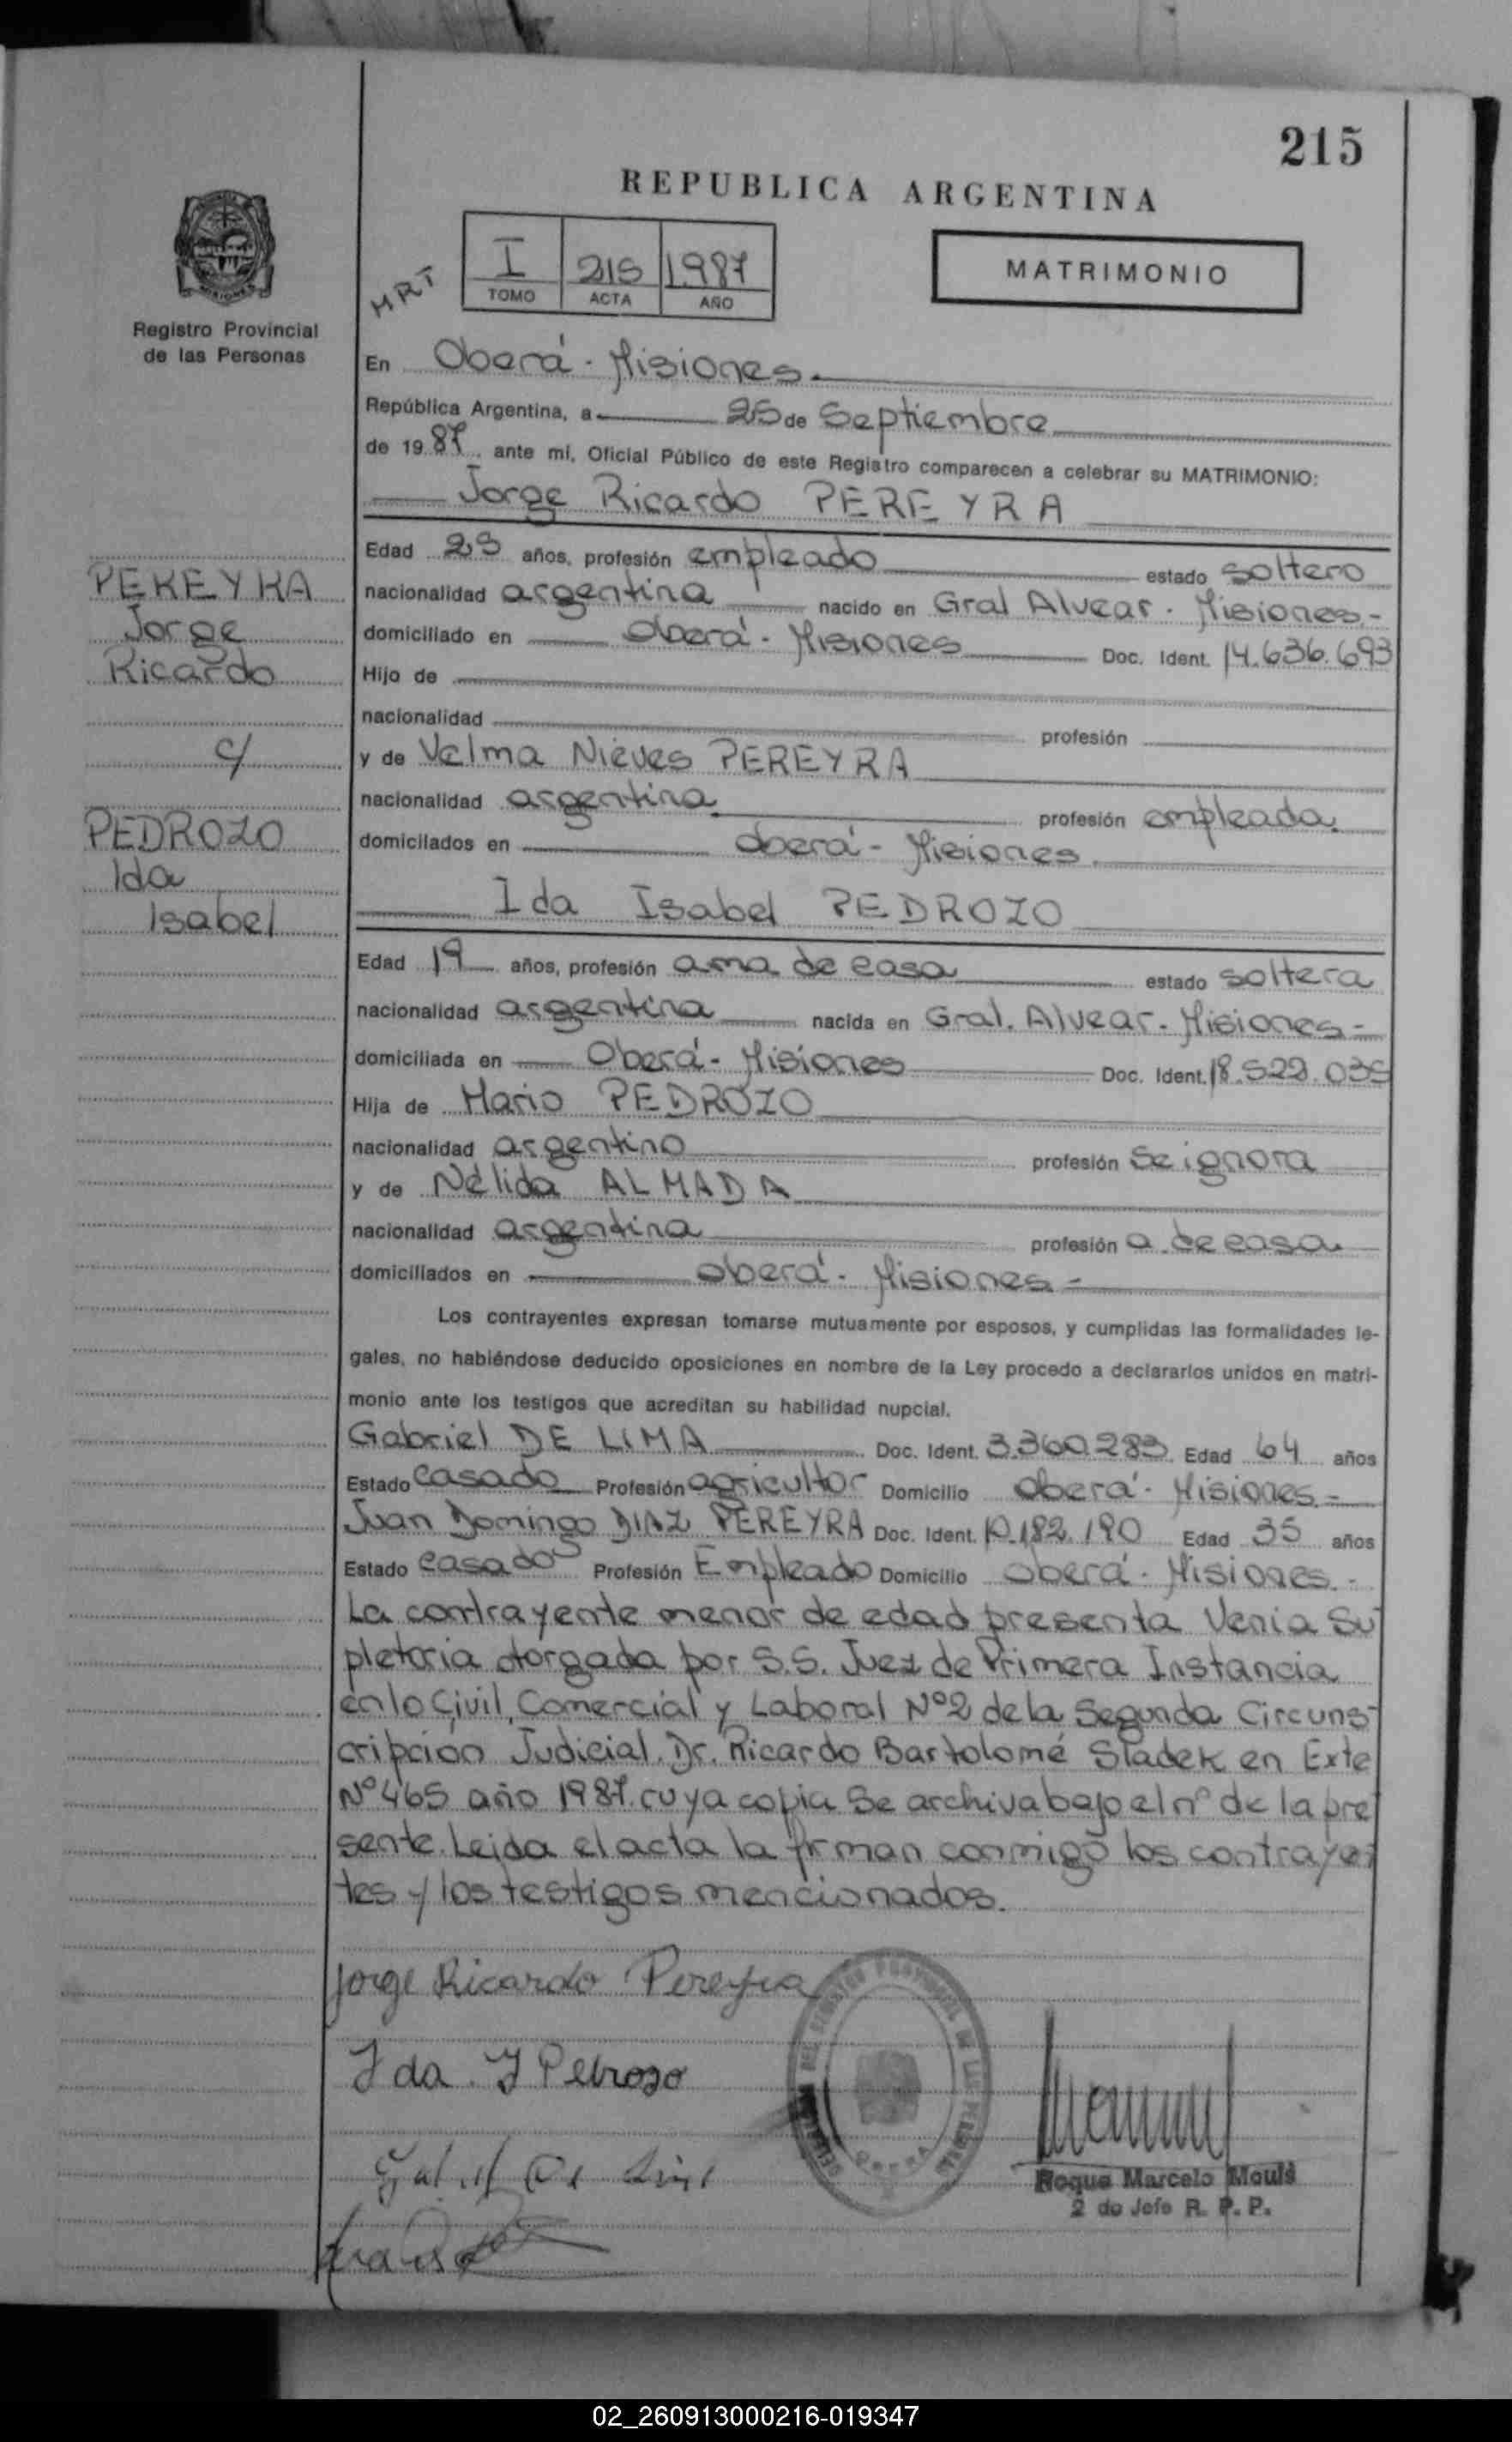 215
REPUBLICA ARGENTINA
MRT
I 215 1.987
TOMO ACTA AÑO
MATRIMONIO
MISIONES
Registro Provincial
de las Personas
PEREYRA
Jorge
Ricardo
c/
PEDROZO
Ida
Isabel
En Oberá - Misiones.
República Argentina, a 25 de Septiembre
de 19 87 ante mí, Oficial Público de este Registro comparecen a celebrar su MATRIMONIO:
Jorge Ricardo PEREYRA
Edad 25 años, profesión empleado estado soltero
nacionalidad argentina nacido en Gral Alvear - Misiones -
domiciliado en Oberá - Misiones Doc. Ident. 14.636.693
Hijo de
nacionalidad profesión
y de Velma Nieves PEREYRA
nacionalidad argentina profesión empleada.
domiciliados en Oberá - Misiones.
Ida Isabel PEDROZO
Edad 19 años, profesión ama de casa estado soltera
nacionalidad argentina nacida en Gral. Alvear - Misiones -
domiciliada en Oberá - Misiones Doc. Ident. 18.522.035
Hija de Mario PEDROZO
nacionalidad argentino profesión Se ignora
y de Nélida ALMADA
nacionalidad argentina profesión a. de casa.
domiciliados en Oberá - Misiones -
Los contrayentes expresan tomarse mutuamente por esposos, y cumplidas las formalidades le-
gales, no habiéndose deducido oposiciones en nombre de la Ley procedo a declararlos unidos en matri-
monio ante los testigos que acreditan su habilidad nupcial.
Gabriel DE LIMA Doc. Ident. 3.360.283 Edad 64 años
Estado casado Profesión agricultor Domicilio Oberá - Misiones -
Juan Domingo DIAZ PEREYRA Doc. Ident. 10.182.190 Edad 35 años
Estado casado Profesión Empleado Domicilio Oberá - Misiones -
La contrayente menor de edad presenta Venia Su
pletoria otorgada por S.S. Juez de Primera Instancia
en lo Civil, Comercial y Laboral Nº2 de la Segunda Circuns-
cripcion Judicial. Dr. Ricardo Bartolomé Sladek en Exte
Nº 465 año 1987. cuya copia Se archiva bajo el nº de la pre
sente. Leida el acta la firman conmigo los contrayen
tes y los testigos mencionados.
Jorge Ricardo Pereyra
Ida. I Pedrozo
Roque Marcelo Moulé
2 do Jefe R. P. P.
02_260913000216-019347